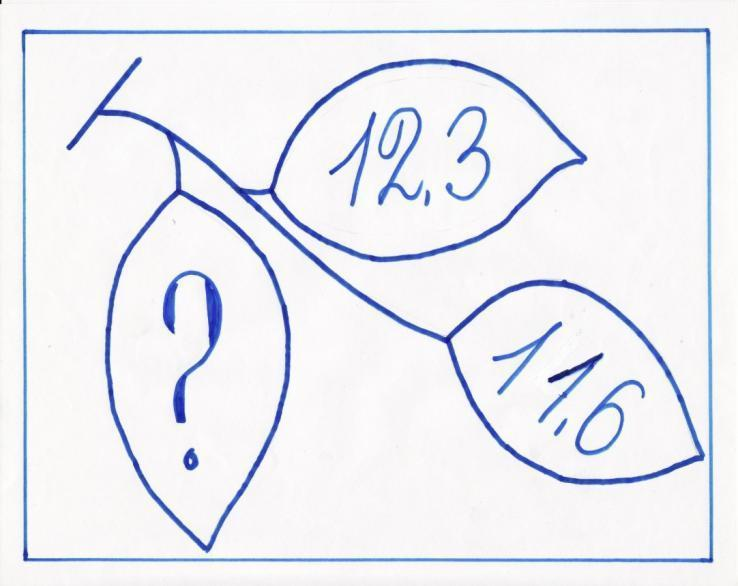 12,3
?
11,6